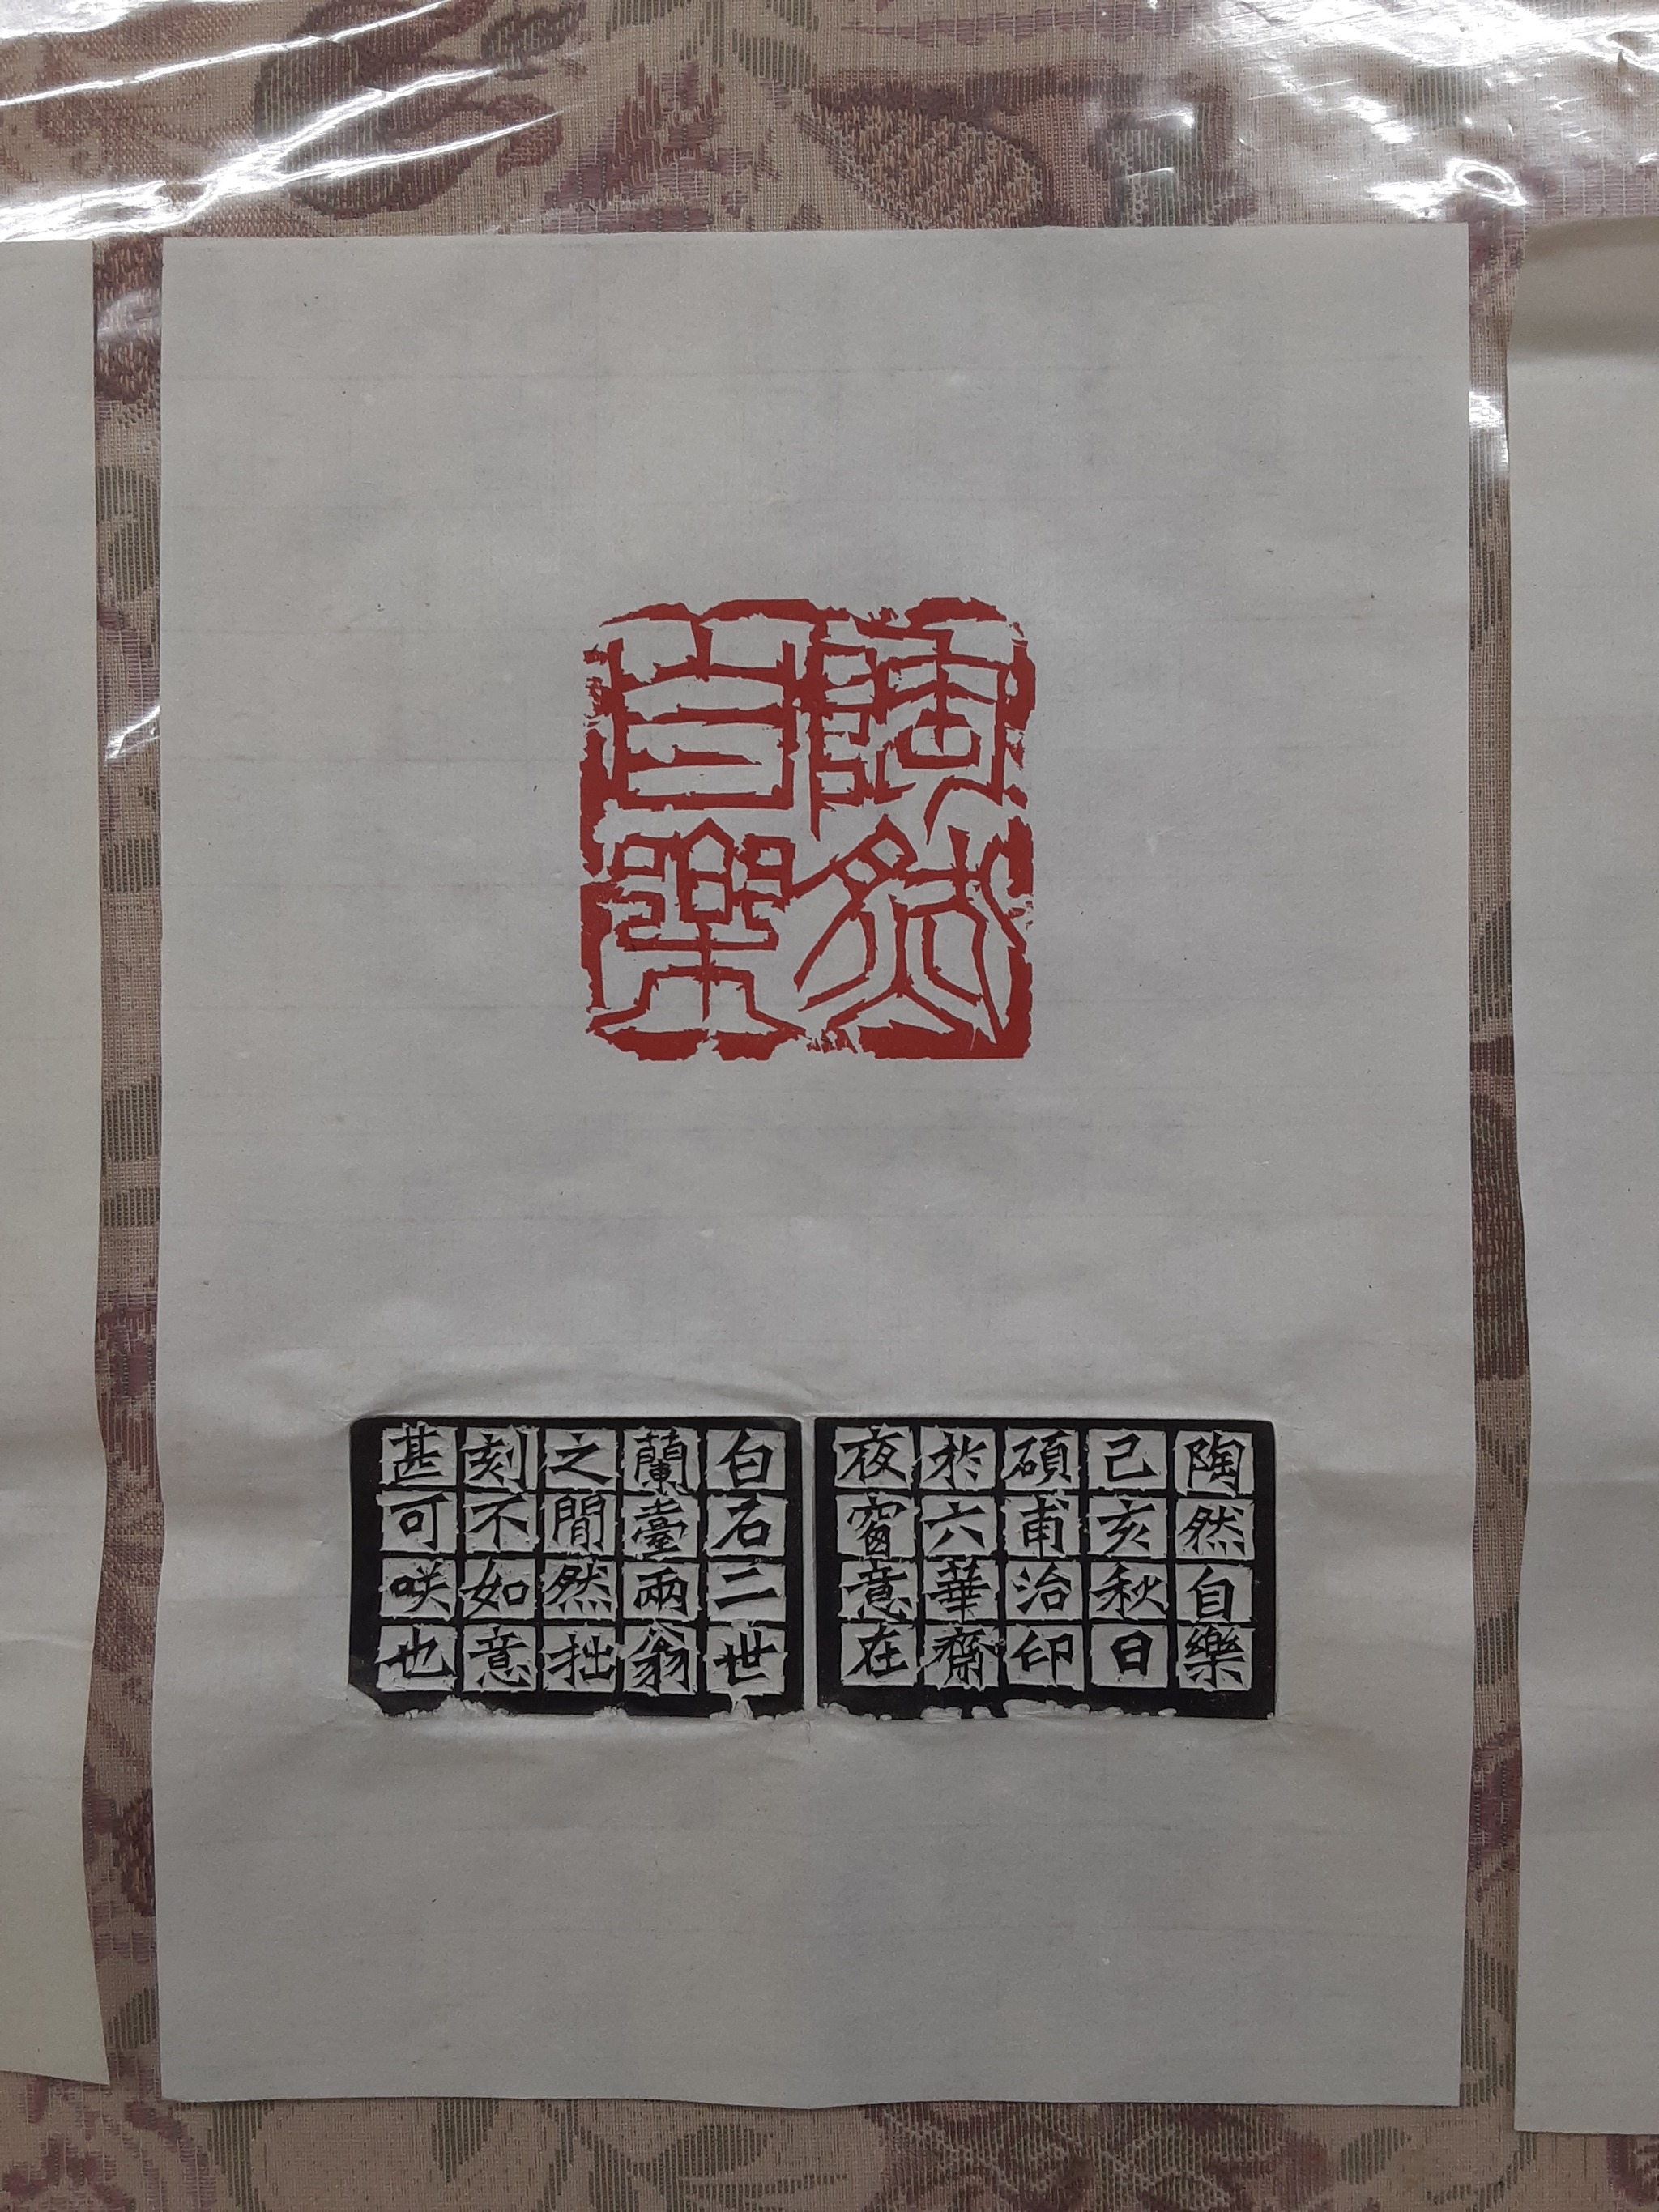 陶然
自樂
陶然自樂
己亥秋日
碩甫治印
於六華齋
夜窗意在
白石二世
蘭臺兩翁
之間然拙
刻不如意
甚可咲也